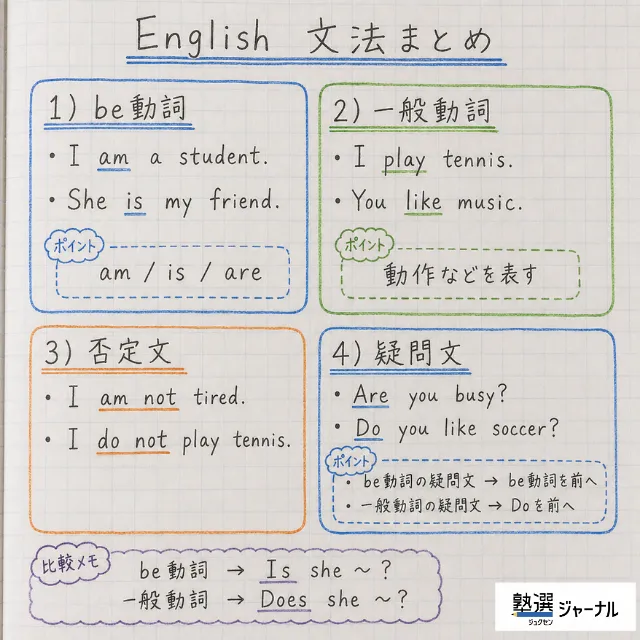 English 文法まとめ
1) be動詞
・I am a student.
・She is my friend.
ポイント
am / is / are
2) 一般動詞
・I play tennis.
・You like music.
ポイント
動作などを表す
3) 否定文
・I am not tired.
・I do not play tennis.
4) 疑問文
・Are you busy?
・Do you like soccer?
ポイント
・be動詞の疑問文 → be動詞を前へ
・一般動詞の疑問文 → Doを前へ
比較メモ
be動詞 → Is she ～?
一般動詞 → Does she ～?
塾選 ジャーナル
ジュクセン